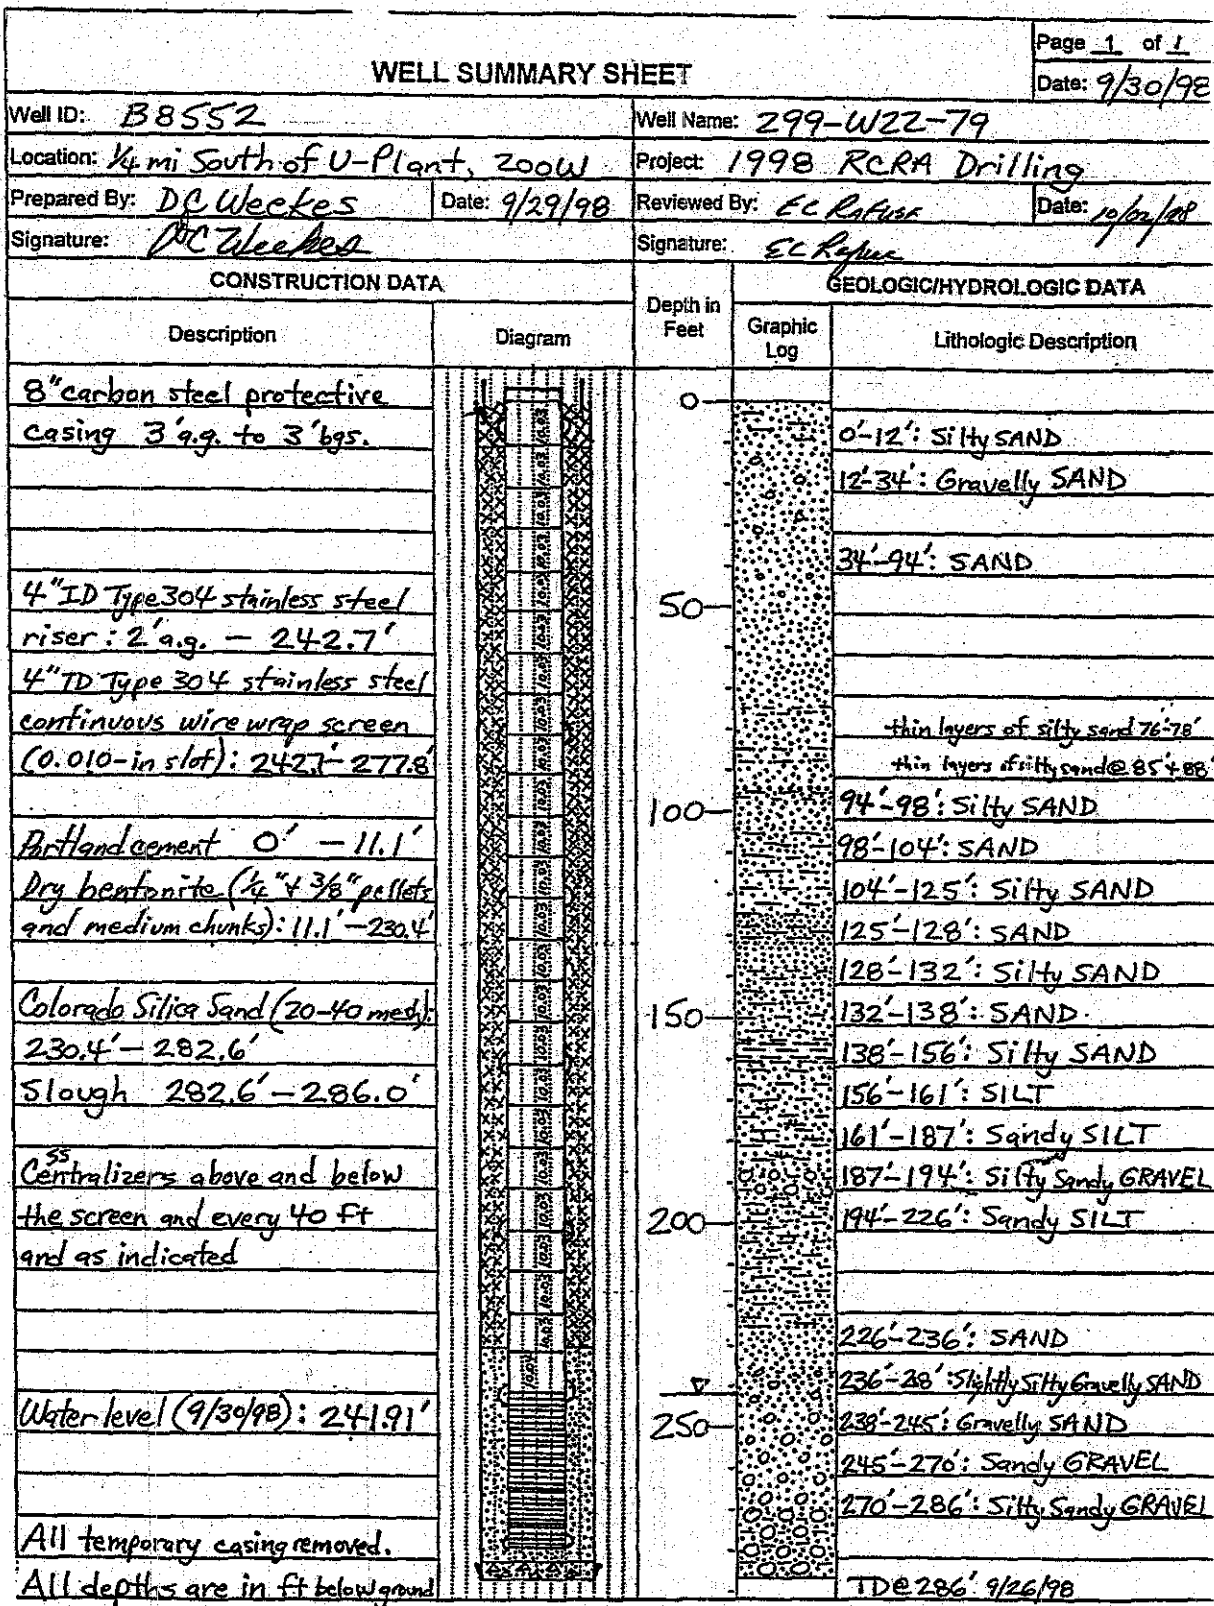 Page 1 of 1
WELL SUMMARY SHEET
Date: 9/30/98
Well ID: B8552
Well Name: 299-W22-79
Location: 1/4 mi South of U-Plant, 200W
Project: 1998 RCRA Drilling
Prepared By: DC Weekes
Date: 9/29/98
Reviewed By: EC Rafuse
Date: 10/02/98
Signature: DC Weekes
Signature: EC Rafuse
CONSTRUCTION DATA
GEOLOGIC/HYDROLOGIC DATA
Description
Diagram
Depth in
Feet
Graphic
Log
Lithologic Description
8" carbon steel protective
casing 3' a.g. to 3' bgs.
4" ID Type 304 stainless steel
riser: 2' a.g. — 242.7'
4" ID Type 304 stainless steel
continuous wire wrap screen
(0.010-in slot): 242.7'-277.8'
Portland cement 0' — 11.1'
Dry bentonite (1/4" + 3/8" pellets
and medium chunks): 11.1' — 230.4'
Colorado Silica Sand (20-40 mesh):
230.4' — 282.6'
Slough 282.6' — 286.0'
SS
Centralizers above and below
the screen and every 40 ft
and as indicated
Water level (9/30/98): 241.91'
All temporary casing removed.
All depths are in ft below ground
0
50
100
150
200
250
0'-12': Silty SAND
12'-34': Gravelly SAND
34'-94': SAND
thin layers of silty sand 76'-78'
thin layers of silty sand @ 85' + 88'
94'-98': Silty SAND
98'-104': SAND
104'-125': Silty SAND
125'-128': SAND
128'-132': Silty SAND
132'-138': SAND
138'-156': Silty SAND
156'-161': SILT
161'-187': Sandy SILT
187'-194': Silty Sandy GRAVEL
194'-226': Sandy SILT
226'-236': SAND
236'-38': Slightly Silty Gravelly SAND
238'-245': Gravelly SAND
245'-270': Sandy GRAVEL
270'-286': Silty Sandy GRAVEL
TD@286' 9/26/98